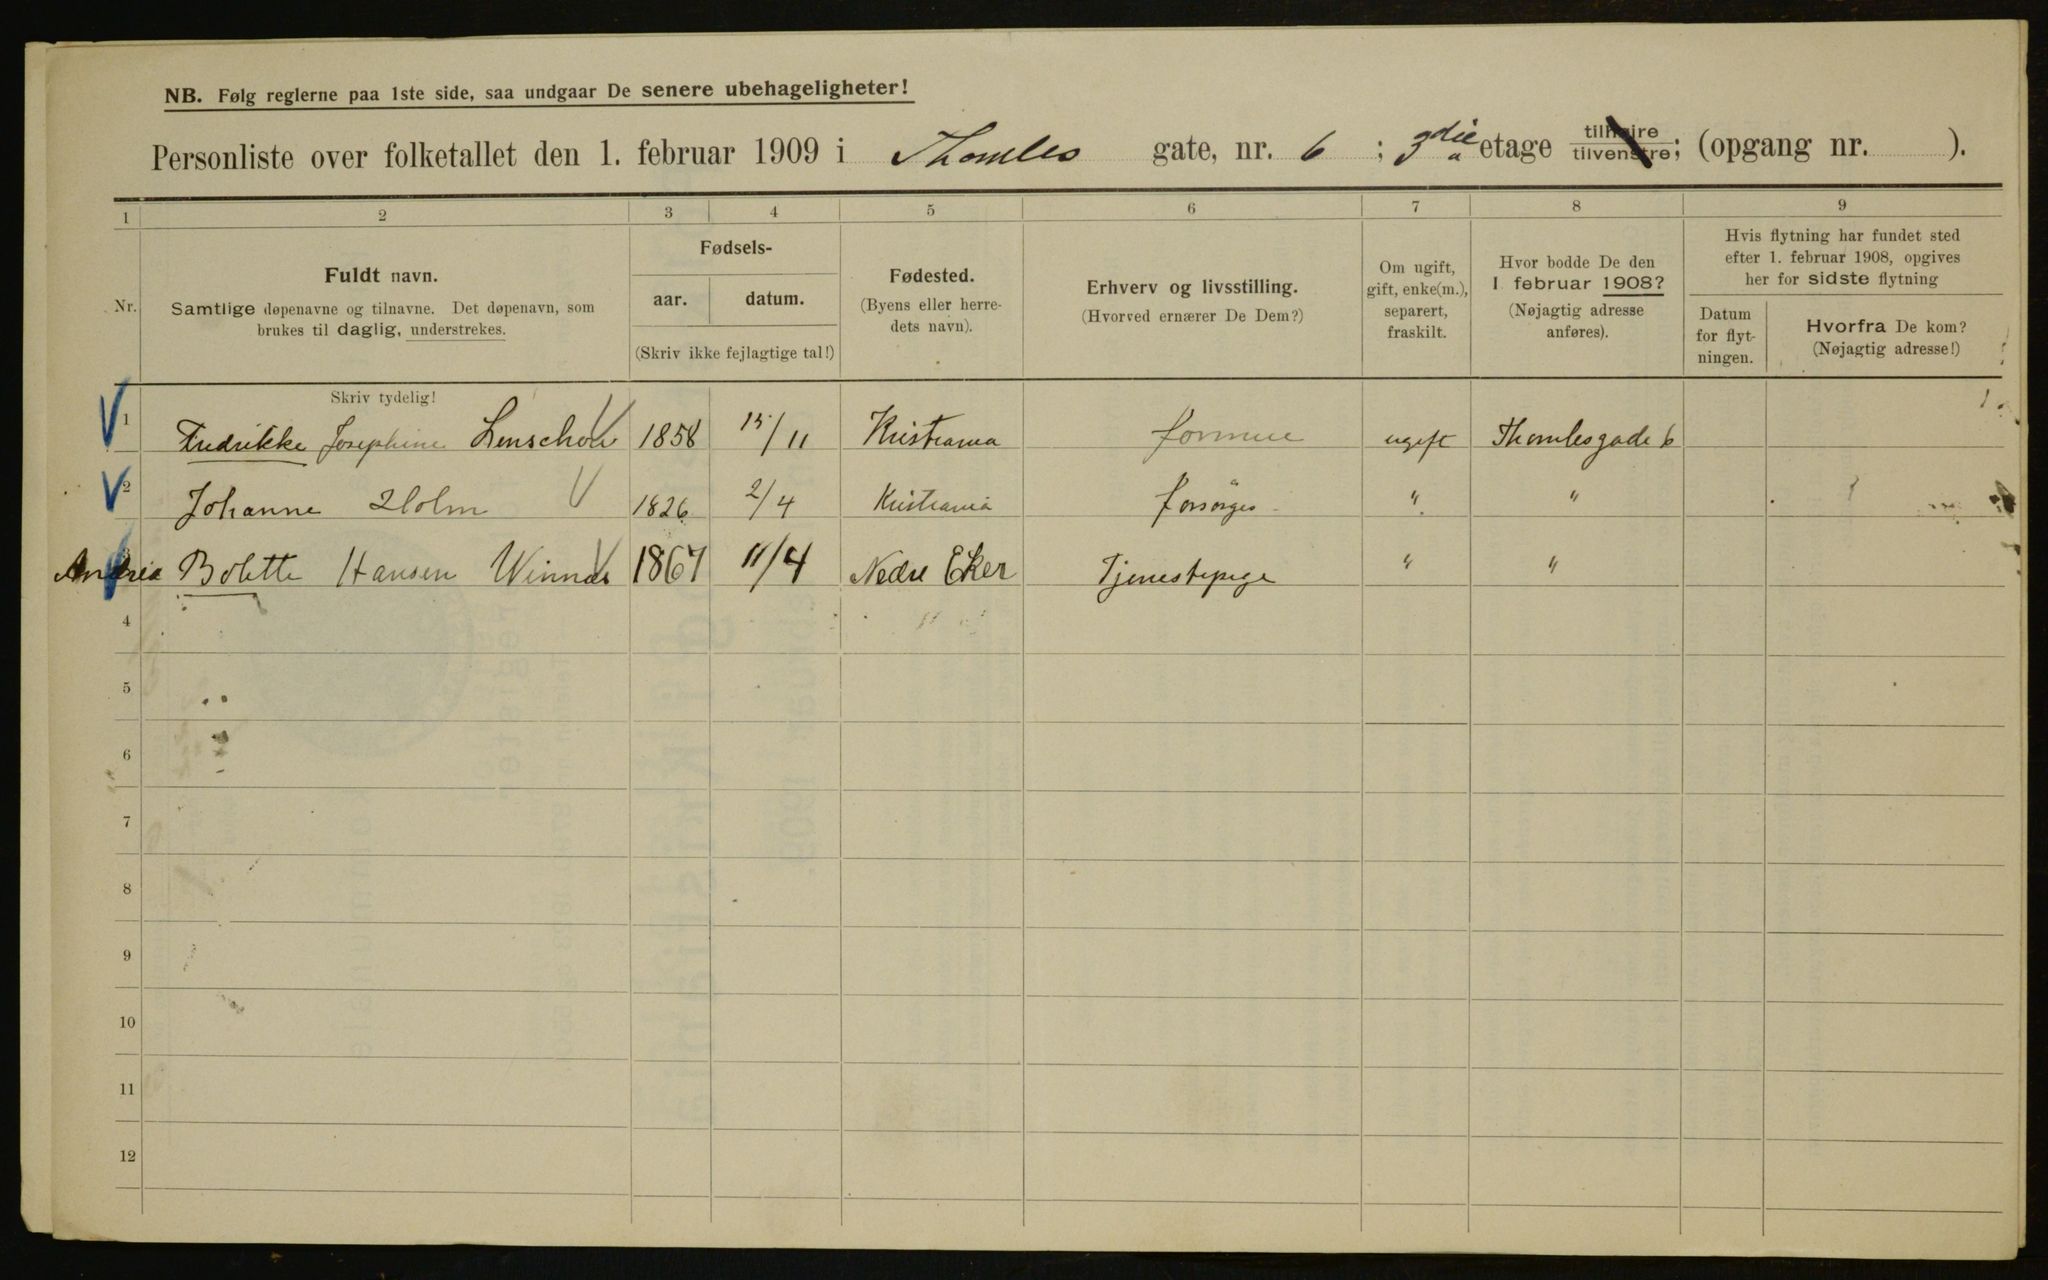 NB. Følg reglerne paa 1ste side, saa undgaar De senere ubehageligheter!
Personliste over folketallet den 1. februar 1909 i Thomles gate, nr. 6 ; 3die etage tilhøire tilvenstre; (opgang nr. ).
1 2 3 4 5 6 7 8 9
Nr.
Fuldt navn.
Samtlige døpenavne og tilnavne. Det døpenavn, som
brukes til daglig, understrekes.
Skriv tydelig!
Fødsels-
aar. datum.
(Skriv ikke fejlagtige tal!)
Fødested.
(Byens eller herre-
dets navn).
Erhverv og livsstilling.
(Hvorved ernærer De Dem?)
Om ugift,
gift, enke(m.),
separert,
fraskilt.
Hvor bodde De den
1. februar 1908?
(Nøjagtig adresse
anføres).
Hvis flytning har fundet sted
efter 1. februar 1908, opgives
her for sidste flytning
Datum
for flyt-
ningen.
Hvorfra De kom?
(Nøjagtig adresse!)
1 Fredrikke Josephine Lenschow 1858 /11 Kristiania formue ugift Thomlesgade 6
2 Johanne Holm 1826 2/4 Kristiania forsørges " "
3 Andrea Bolette Hansen Winnes 1867 11/4 Nedre Eker Tjenestepige " "
4
5
6
7
8
9
10
11
12